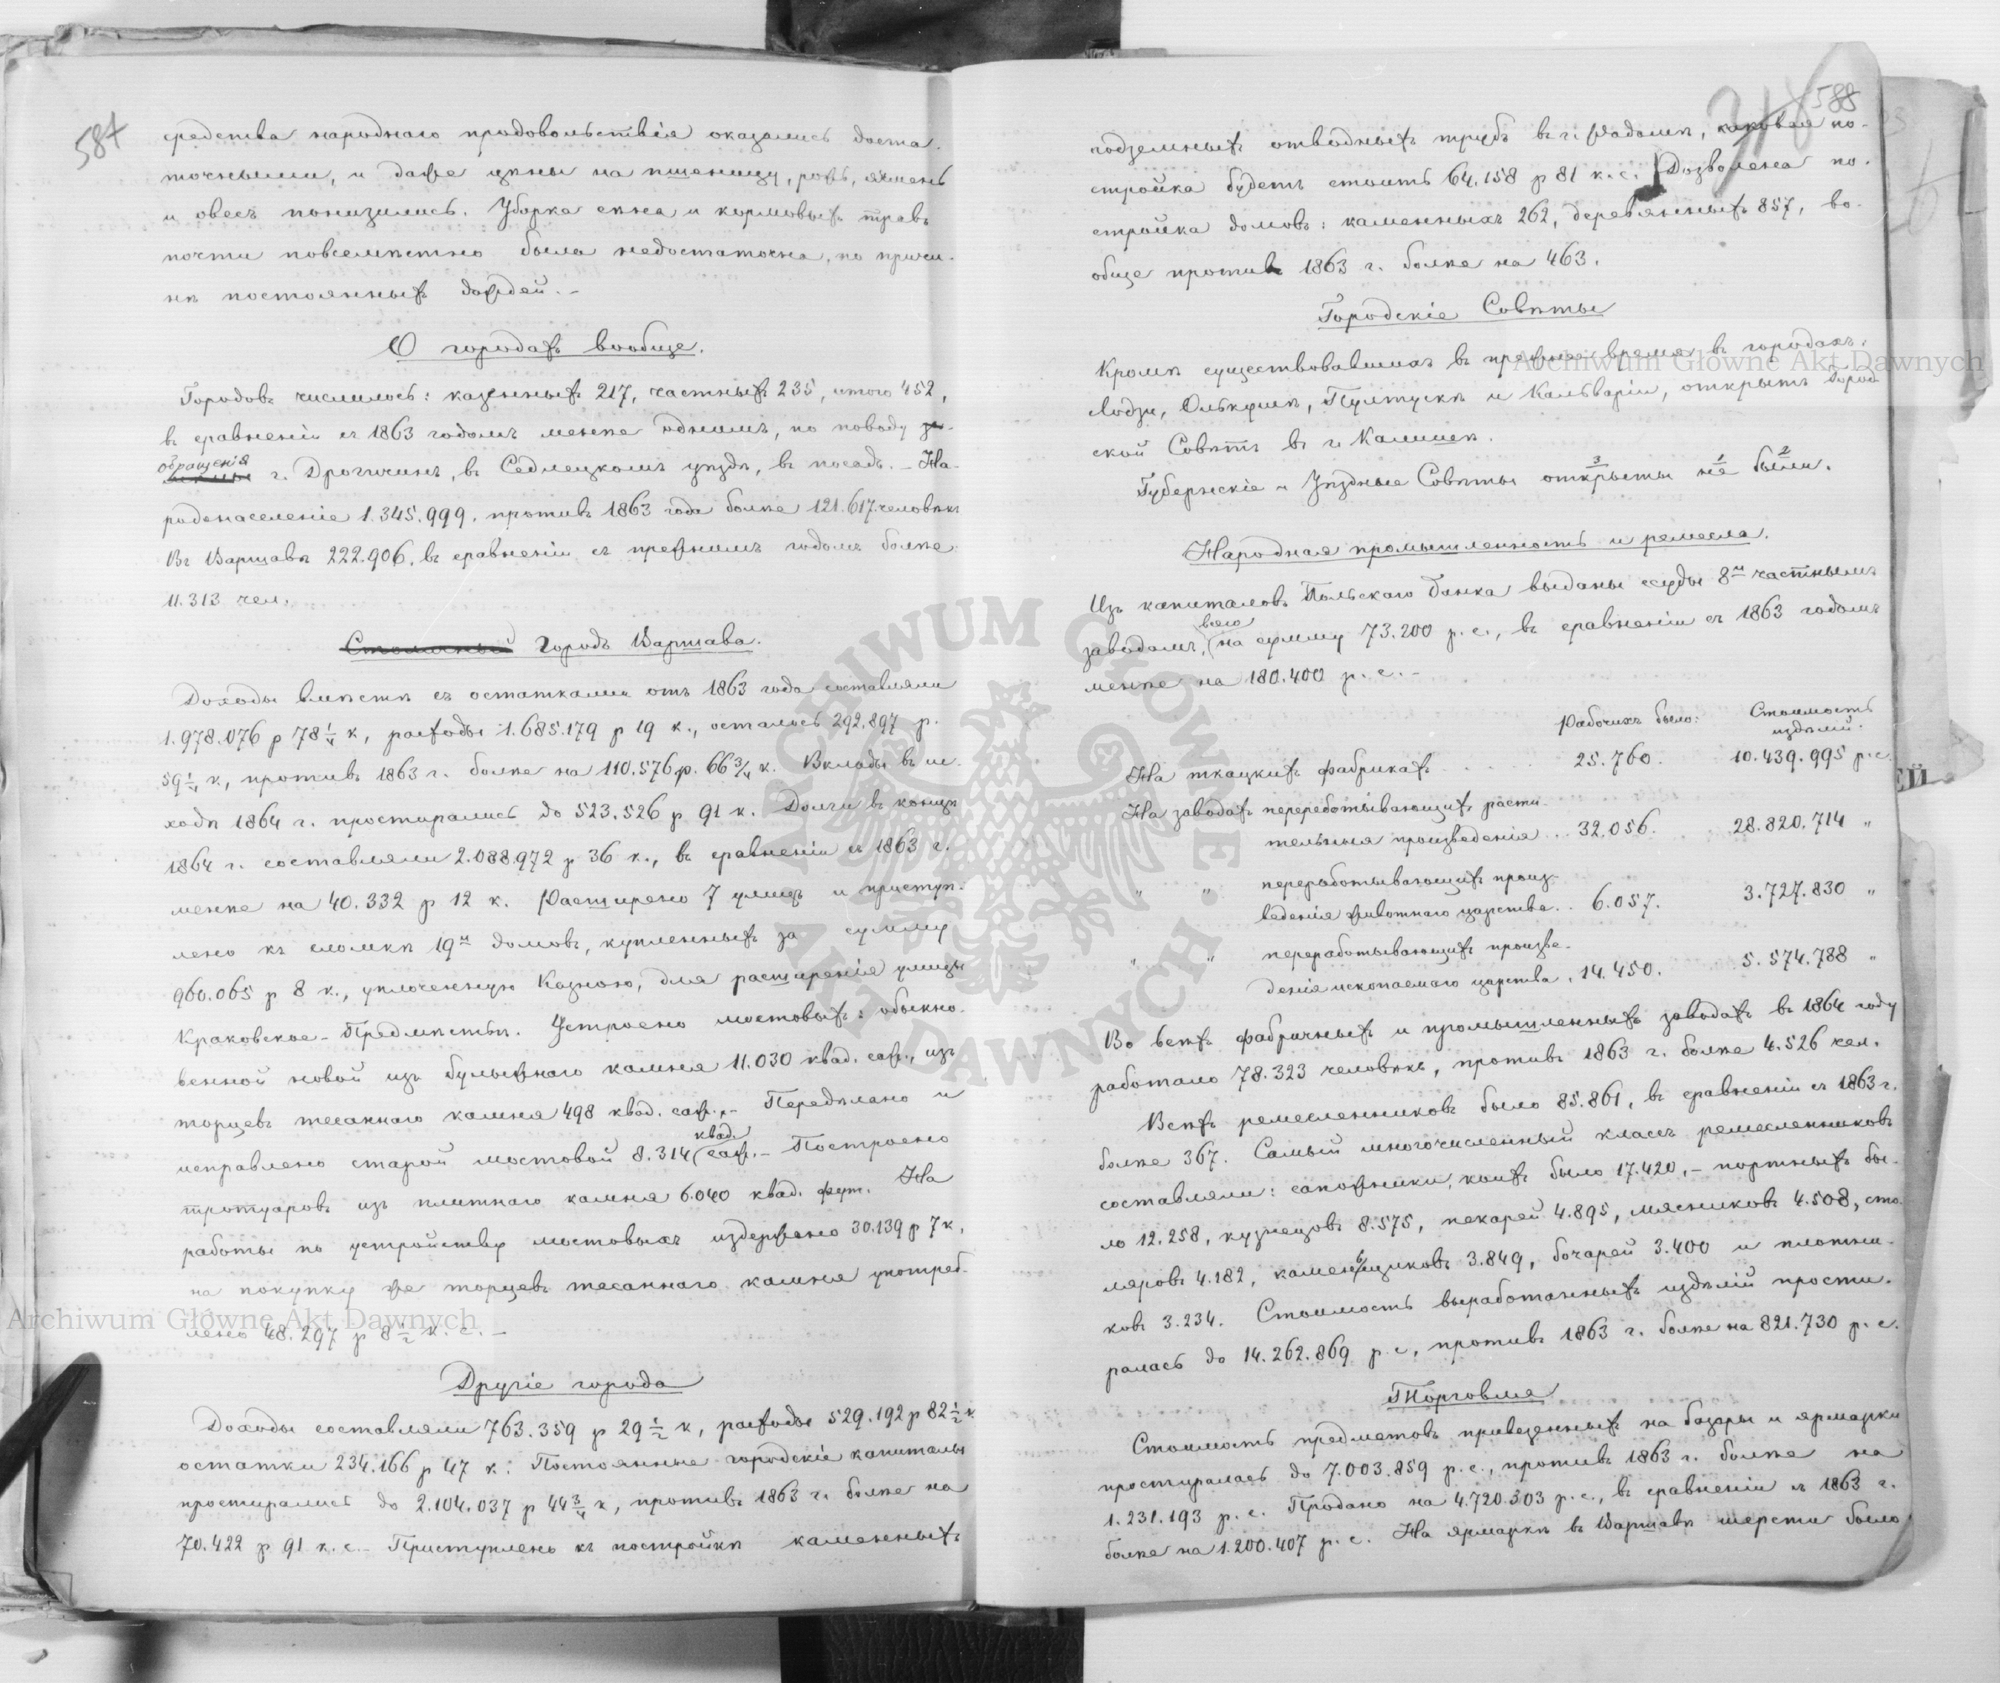 587
средства народнаго продовольствія оказались доста-
точными, и даже цѣны на пшеницу, рожь, ячмень
и овесъ понизились. Уборка сѣна и кормовыхъ травъ
почти повсемѣстно была недостаточна, по причи-
нѣ постоянныхъ дождей. –
О городахъ вообще.
Городовъ числилось: казенныхъ 217, частныхъ 235, итого 452,
въ сравненіи съ 1863 годомъ менѣе однимъ, по поводу
обращенія г. Дрогичинъ, въ Седлецкомъ уѣздѣ, въ посадъ. – На-
родонаселеніе 1.345.999, противъ 1863 года болѣе 121.617 человѣкъ
Въ Варшавѣ 222.906, въ сравненіи съ прежнимъ годомъ болѣе
11.313 чел.
Столичный Городъ Варшава.
Доходы вмѣстѣ съ остатками отъ 1863 года составляли
1.978.076 р 78 1/4 к, расходы 1.685.179 р 19 к., осталось 292.897 р.
59 1/4 к, противъ 1863 г. болѣе на 110.576 р. 66 3/4 к. Вклады въ ис-
ходѣ 1864 г. простирались до 523.526 р 91 к. Долги въ концѣ
1864 г. составляли 2.088.972 р 36 к., въ сравненіи съ 1863 г.
менѣе на 40.332 р 12 к. Расширено 7 улицъ и приступ-
лено къ сломкѣ 19ти домовъ, купленныхъ за сумму
960.065 р 8 к., уплоченную Казною, для расширенія улицы
Краковское-Предмѣстье. Устроено мостовыхъ: обыкно-
венной новой изъ булыжнаго камня 11.030 квад. саж., изъ
торцевъ тесаннаго камня 498 квад. саж. – Передѣлано и
квад.
исправлено старой мостовой 8.314 саж. – Построено
тротуаровъ изъ плитнаго камня 6.040 квад. фут. На
работы по устройству мостовыхъ издержано 30.139 р 7 к,
на покупку же торцевъ тесаннаго камня употреб-
лено 48.297 р 8 1/2 к. с. –
Другіе города
Доходы составляли 763.359 р 29 1/2 к, расходы 529.192 р 82 1/2 к
остатки 234.166 р 47 к. Постоянные городскіе капиталы
простирались до 2.104.037 р 44 3/4 к, противъ 1863 г. болѣе на
70.422 р 91 к. с. – Приступлено къ постройкѣ каменныхъ
588
подземныхъ отводныхъ трубъ въ г. Радомѣ, каковая по-
стройка будетъ стоить 64.158 р 81 к. с. Дозволена по-
стройка домовъ: каменныхъ 262, деревянныхъ 857, во-
обще противъ 1863 г. болѣе на 463.
Городскіе Совѣты
Кромѣ существовавшихъ въ прежнее время въ городахъ:
Лодзи, Олькушѣ, Пултускѣ и Кальваріи, открытъ Город
ской Совѣтъ въ г. Калишѣ.
3 1 2
Губернскіе и Уѣздные Совѣты открыты не были.
Народная промышленность и ремесла.
Изъ капиталовъ Польскаго банка выданы ссуды 8ми частнымъ
всего
заводамъ, на сумму 73.200 р. с., въ сравненіи съ 1863 годомъ
менѣе на 180.400 р. с. –
Рабочихъ было: Стоимость издѣлій.
На ткацкихъ фабрикахъ 25.760. 10.439.995 р. с
На заводахъ переработывающихъ расти-
тельныя произведенія 32.056. 28.820.714 "
" " переработывающихъ произ-
веденія животнаго царства 6.057. 3.727.830 "
" " переработывающихъ произве-
денія ископаемаго царства 14.450. 5.574.788 "
Во всѣхъ фабричныхъ и промышленныхъ заводахъ въ 1864 году
работало 78.323 человѣкъ, противъ 1863 г. болѣе 4.526 чел.
Всѣхъ ремесленниковъ было 85.861, въ сравненіи съ 1863 г.
болѣе 367. Самый многочисленный классъ ремесленниковъ
составляли: сапожники, коихъ было 17.420, – портныхъ бы-
ло 12.258, кузнецовъ 8.575, пекарей 4.895, мясниковъ 4.508, сто-
ляровъ 4.182, каменьщиковъ 3.849, бочарей 3.400 и плотни-
ковъ 3.234. Стоимость выработанныхъ издѣлій прости-
ралась до 14.262.869 р. с, противъ 1863 г. болѣе на 821.730 р. с.
Торговля
Стоимость предметовъ привезенныхъ на базары и ярмарки
простиралась до 7.003.859 р. с., противъ 1863 г. болѣе на
1.231.193 р. с. Продано на 4.720.303 р. с., въ сравненіи съ 1863 г.
болѣе на 1.200.407 р. с. На ярмаркѣ въ Варшавѣ шерсти было
Archiwum Główne Akt Dawnych
Archiwum Główne Akt Dawnych
ARCHIWUM GŁÓWNE AKT DAWNYCH